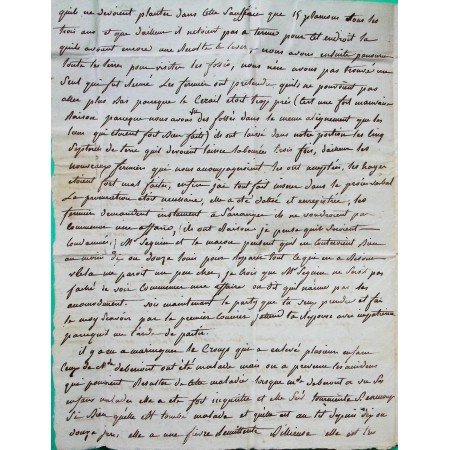 qu'ils ne devoient planter dans cette que 15 plancons tous les
trois ans et que d'ailleurs il n'etoient pas a terme pour tel endroit la
qu'ils avoient encore une a lever, nous avons ensuite parcouru
toute les terres pour visiter les fossés, nous n'en avons pas trouvé un
seul qui fut les fermiers ont pretendu qu'ils ne pouvoient pas
aller plus bas parceque le étoit trop près (c'est une fort mauvaise
raison parceque nous avons des fossés dans le meme que les
leurs qui étoient fort bien faits) ils ont laissé dans notre portion les cinq
de terre qu'ils devoient laisser labourées trois fois, d'ailleurs les
nouveaux fermiers qui nous accompagnoient les ont acceptés, les hayes
etoient fort mal faites, enfin j'ai tout fait inserer dans le procès verbal
La procuration étoit necessaire, elle a eté datée et enregistrée, les
fermiers demandent instament a s'arranger ils ne voudroient pas
commencer une affaire, (ils ont raison je pense qu'ils seroient
condamnés,) Mr Seguin et la maison pensent qu'il en
au moins dix ou douze louis pour reparer tout ce qui en a besoin
cela me parait un peu cher, je crois que Mr Seguin ne seroit pas
faché de voir commencer une affaire on dit qu'il n'aime pas les
vois maintenant le party que tu veux prendre et fais
le moy scavoir par le premier courrier j'attend ta reponse avec impatience
parcequ'il me tarde de partir
il y a eu a maringues le croup qui a enlevé plusieurs enfans
ceux de Mde ont été malade mais on a prevenu les accidens
que pouvoient resulter de cette maladie lorsque mde a vu ses
enfans malades elle a eté fort inquiette et elle s'est tourmentée beaucoup
si bien qu'elle est tombé malade et qu'elle est au lit depuis dix ou
douze jours, elle a une fièvre elle est